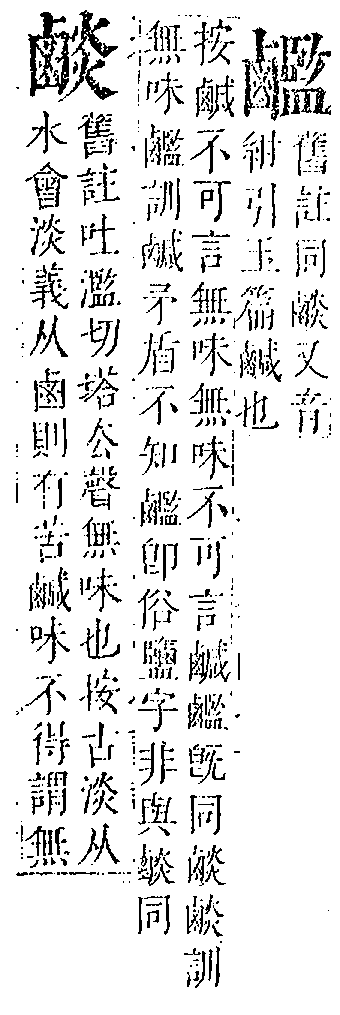 𪉹
舊註同𪉧又音
紺引玉篇鹹也
按鹹不可言無味無味不可言鹹𪉹既同𪉧𪉧訓
無味𪉹訓鹹矛盾不知𪉹卽俗鹽字非與𪉧同
𪉧
舊註吐濫切塔公聲無味也按古淡从
水會淡義从鹵則有苦鹹味不得謂無